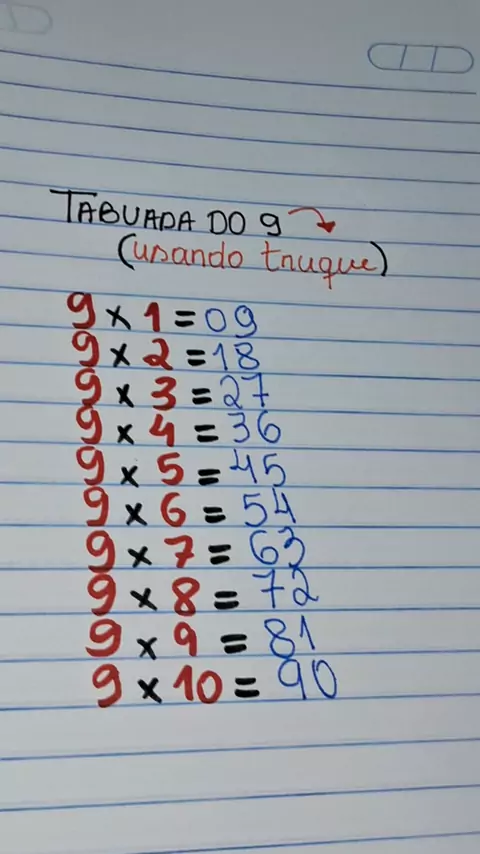 TABUADA DO 9
(usando truque)
9 x 1 = 09
9 x 2 = 18
9 x 3 = 27
9 x 4 = 36
9 x 5 = 45
9 x 6 = 54
9 x 7 = 63
9 x 8 = 72
9 x 9 = 81
9 x 10 = 90